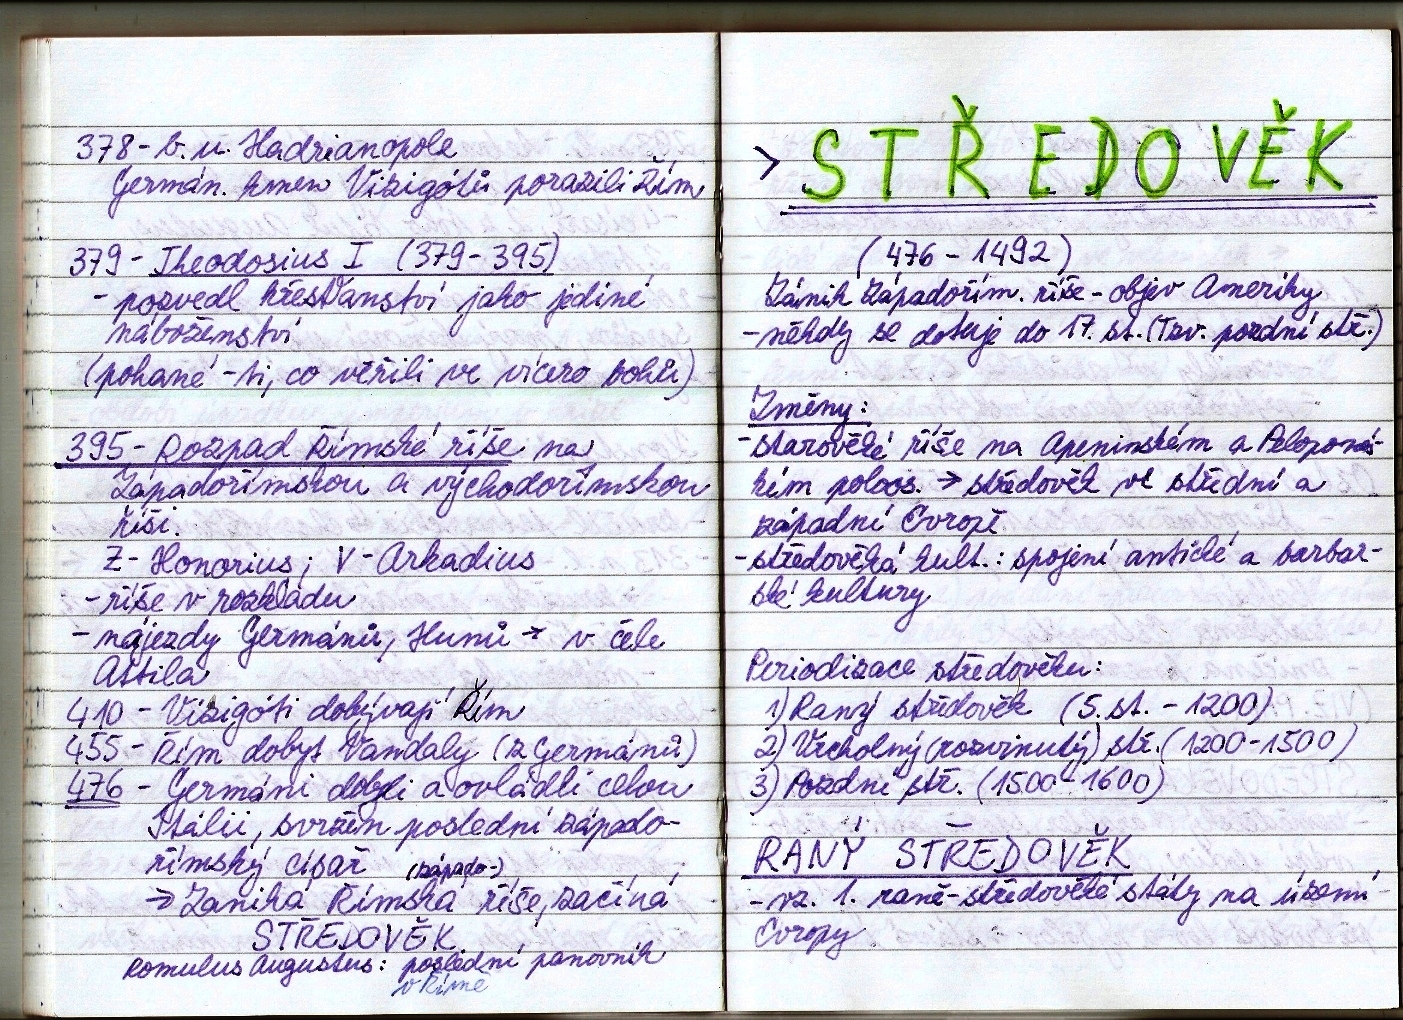 378 - b. u. Hadrianopole
Germán. kmen Vizigótů porazili Řím
379 - Theodosius I (379 - 395)
- pozvedl křesťanství jako jediné
náboženství
(pohané - ti, co věřili ve vícero bohů)
395 - Rozpad Římské říše na
Západořímskou a východořímskou
říši.
Z - Honorius; V - Arkadius
- říše v rozkladu
- nájezdy Germánů, Hunů → v čele
Attila
410 - Vizigóti dobývají Řím
455 - Řím dobyt Vandaly (z Germánů)
476 - Germáni dobyli a ovládli celou
Itálii, svržen poslední západo-
římský císař (západo-)
→ Zaniká Římská říše, začíná
STŘEDOVĚK
Romulus Augustus: poslední panovník
v Římě
> STŘEDOVĚK
(476 - 1492)
Zánik Západořím. říše - objev Ameriky
- někdy se datuje do 17. st. (Tzv. pozdní stř.)
Změny:
- starověké říše na Apeninském a Pelopones-
kém poloos. → středověk ve střední a
západní Evropě
- středověká kult.: spojení antické a barbar-
ské kultury
Periodizace středověku:
1) Raný středověk (5. st. - 1200)
2) Vrcholný (rozvinutý) stř. (1200 - 1500)
3) Pozdní stř. (1500 - 1600)
RANÝ STŘEDOVĚK
- vz. 1. raně-středověké státy na území
Evropy